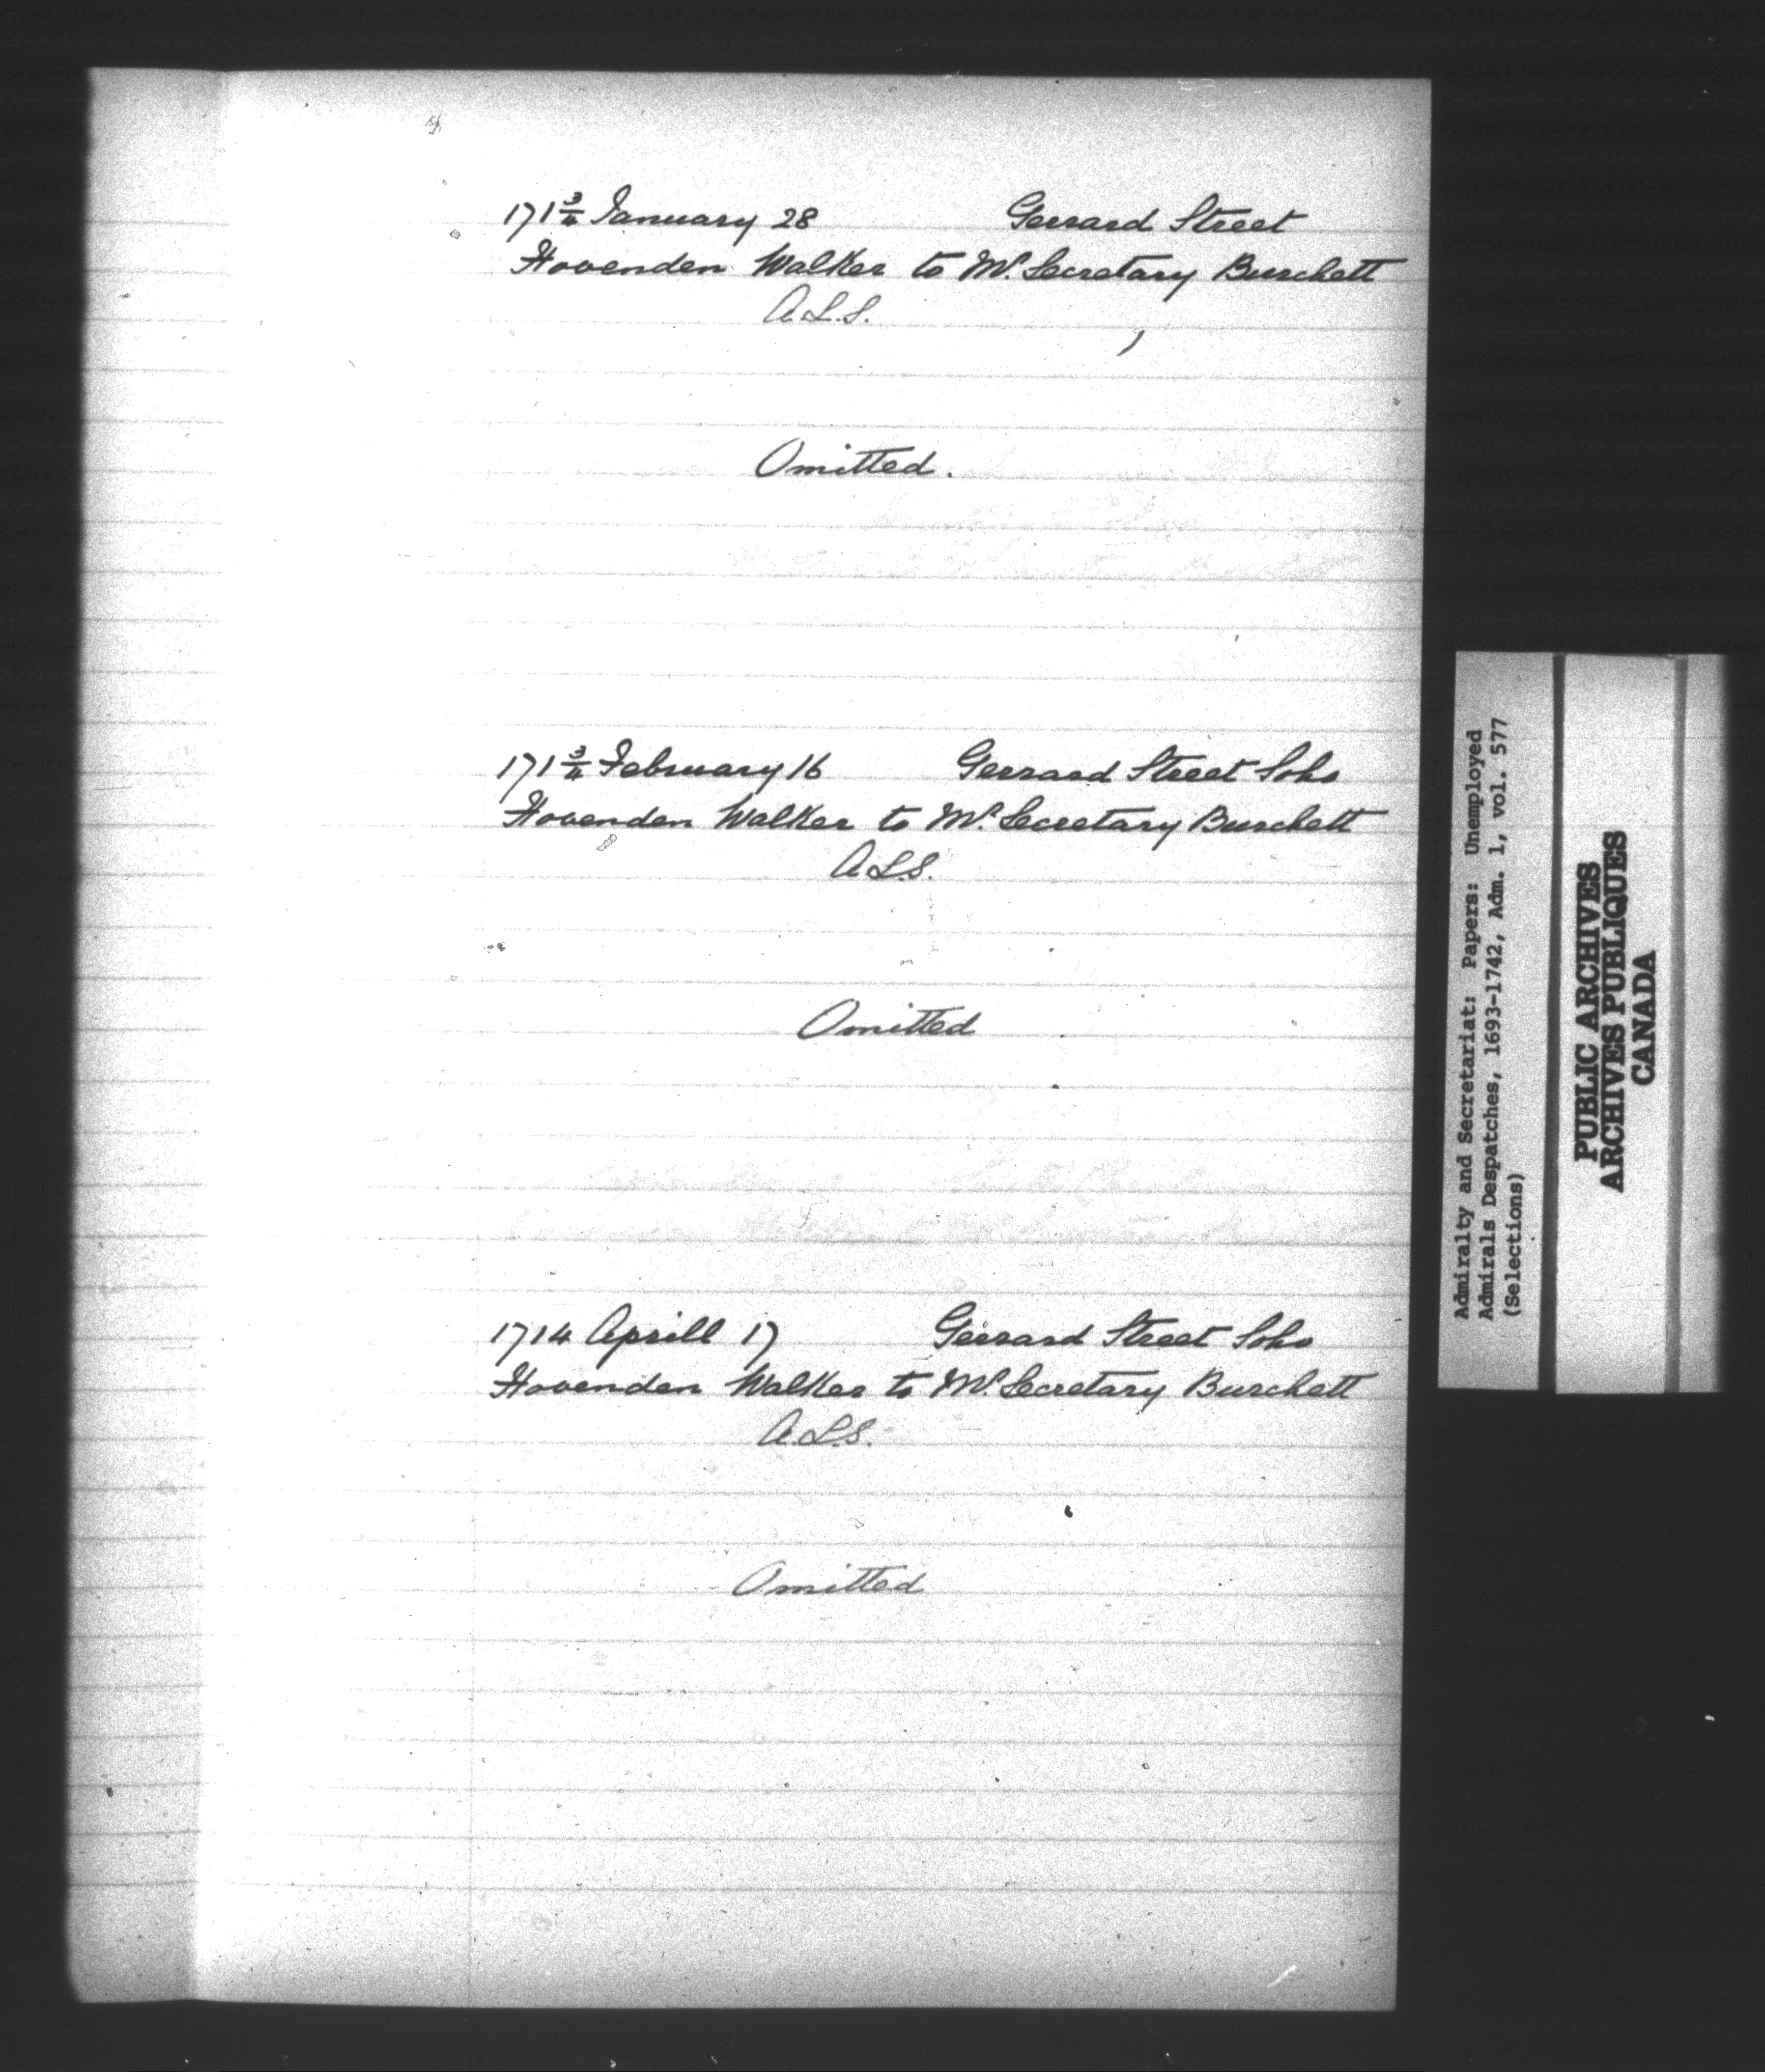 171¾ January 28 Gerrard Street
Hovenden Walker to Mr. Secretary Burchett
A.L.S.
Omitted.
171¾ February 16 Gerrard Street Soho
Hovenden Walker to Mr. Secretary Burchett
A.L.S.
Omitted
1714 Aprill 17 Gerrard Street Soho
Hovenden Walker to Mr. Secretary Burchett
A.L.S.
Omitted
Admiralty and Secretariat: Papers: Unemployed
Admirals Despatches, 1693-1742, Adm. 1, vol. 577
(Selections)
PUBLIC ARCHIVES
ARCHIVES PUBLIQUES
CANADA